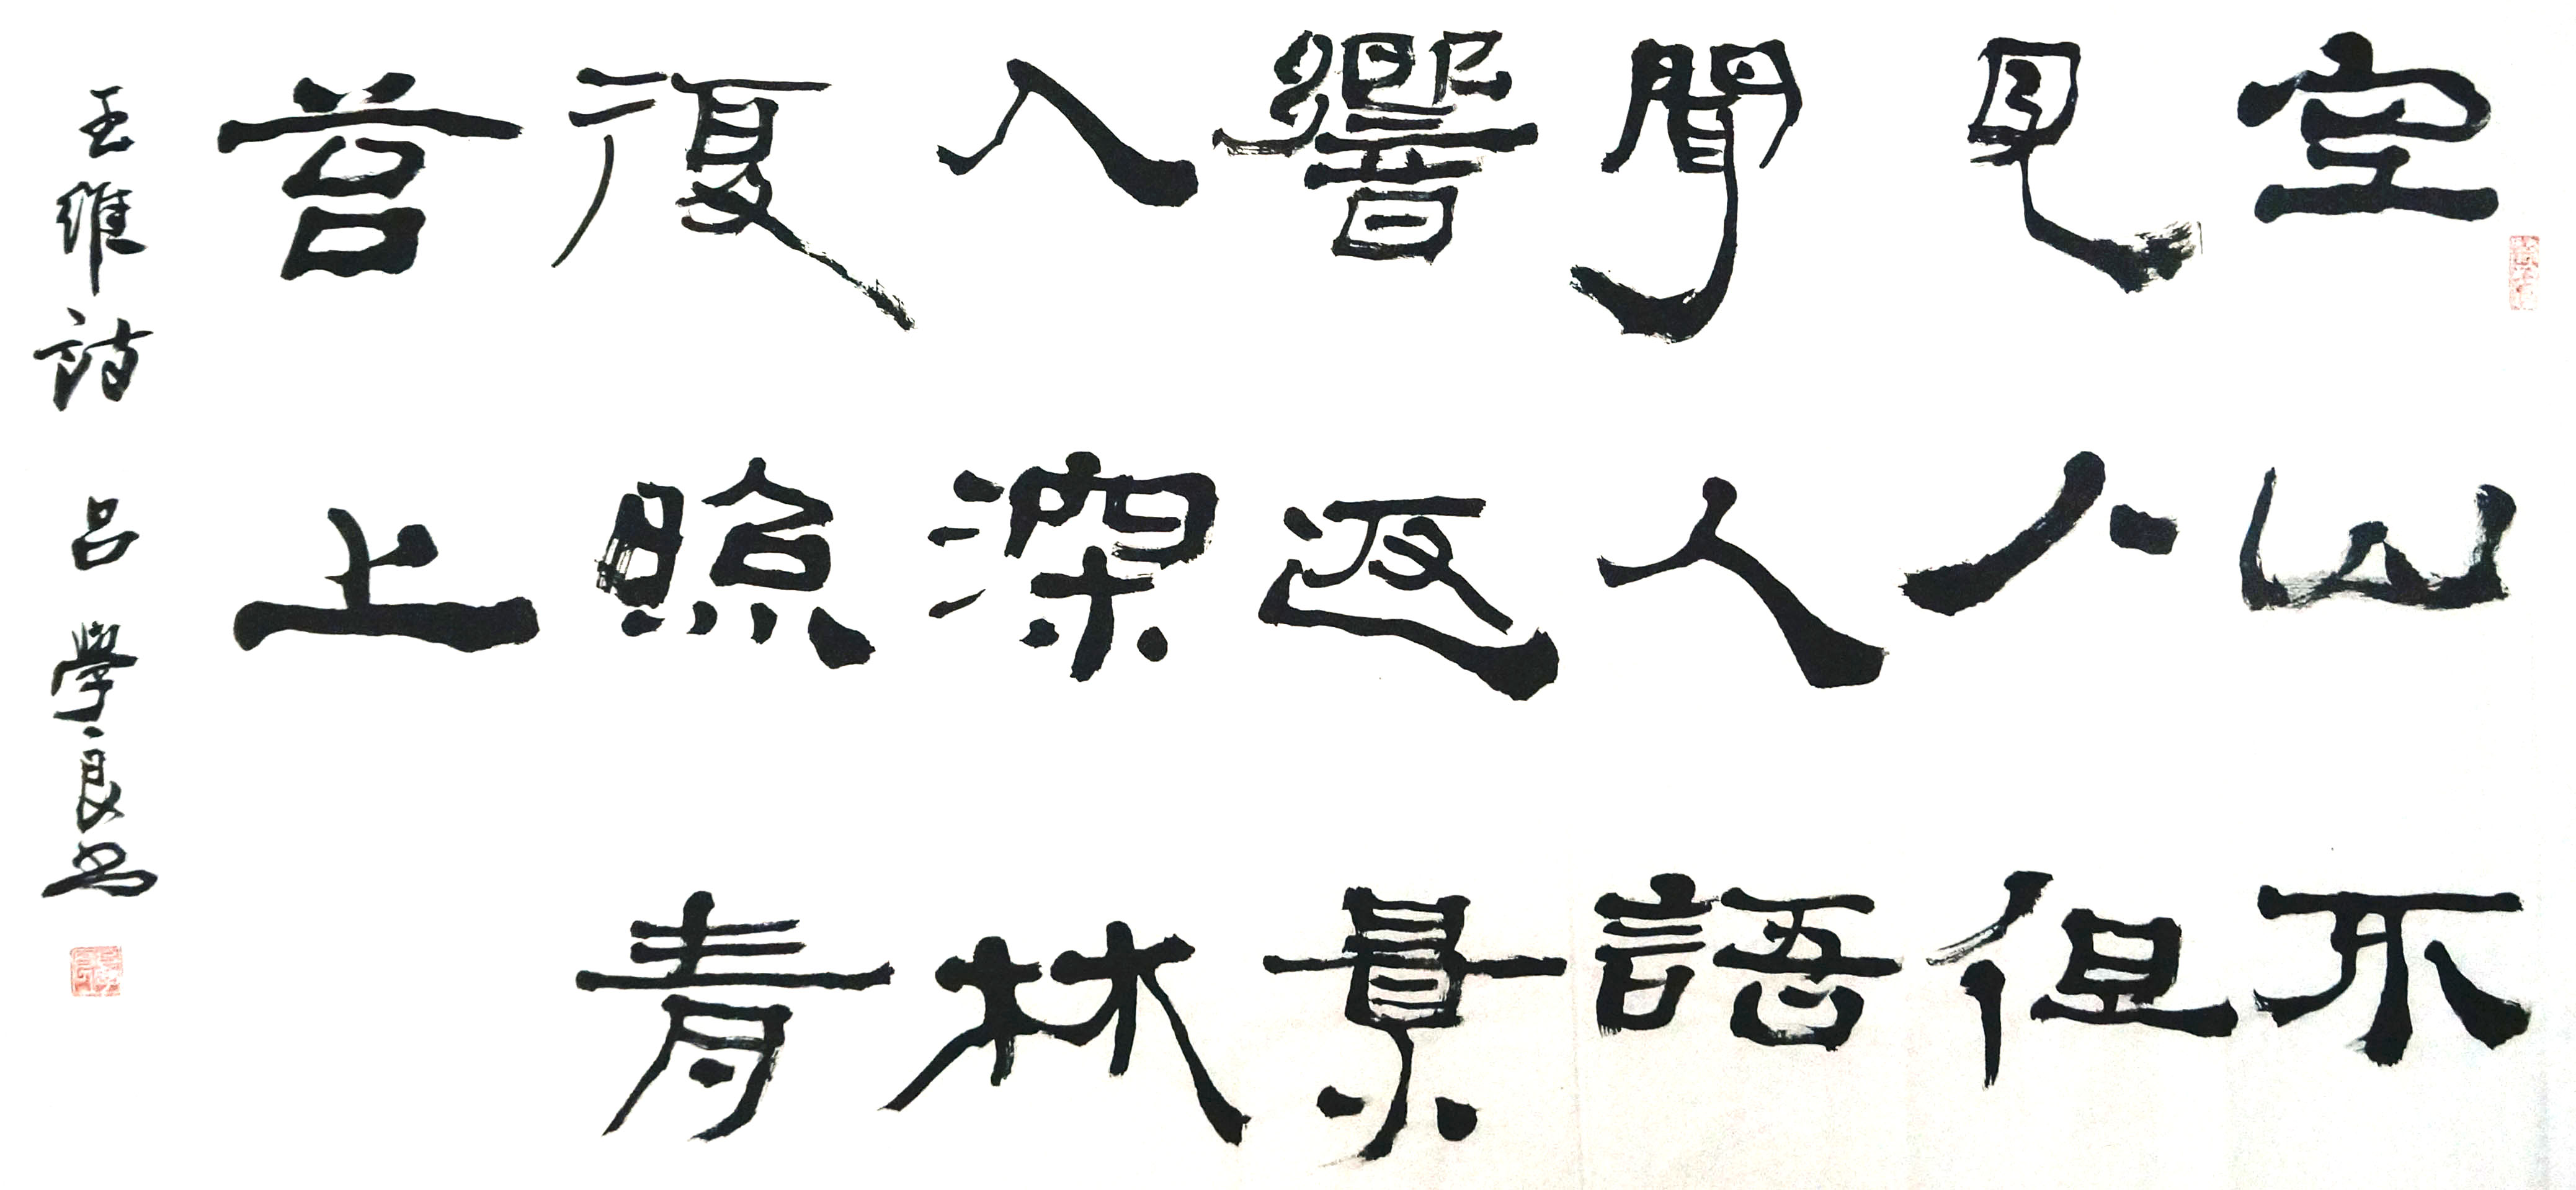 空山不
見人但
聞人語
響返景
入深林
復照青
苔上
王維詩 呂學良書